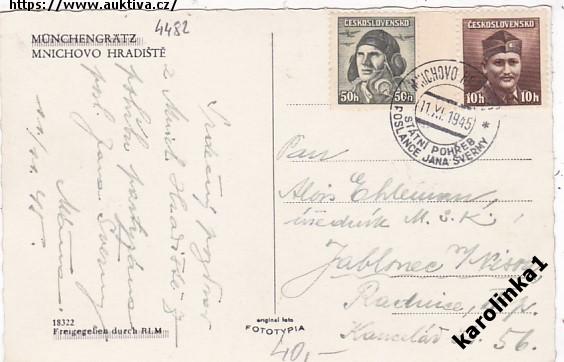 https://www.auktiva.cz/
4482
MÜNCHENGRÄTZ
MNICHOVO HRADIŠTĚ
Srdečný pozdrav
z Mnich. Hradiště z
pohřbu partyzána
posl. Jana Švermy
11./XI. 45.
18322
Freigegeben durch RLM
original foto
FOTOTYPIA
40,-
ČESKOSLOVENSKO
50h 50h
ČESKOSLOVENSKO
10h 10h
MNICHOVO
11.XI.1945
STÁTNÍ POHŘEB
POSLANCE JANA ŠVERMY
Pan
Alois Ehleman,
úředník M.S.K.,
Jablonec n/Nisou
Radnice,
Kancelář 56.
karolinka1